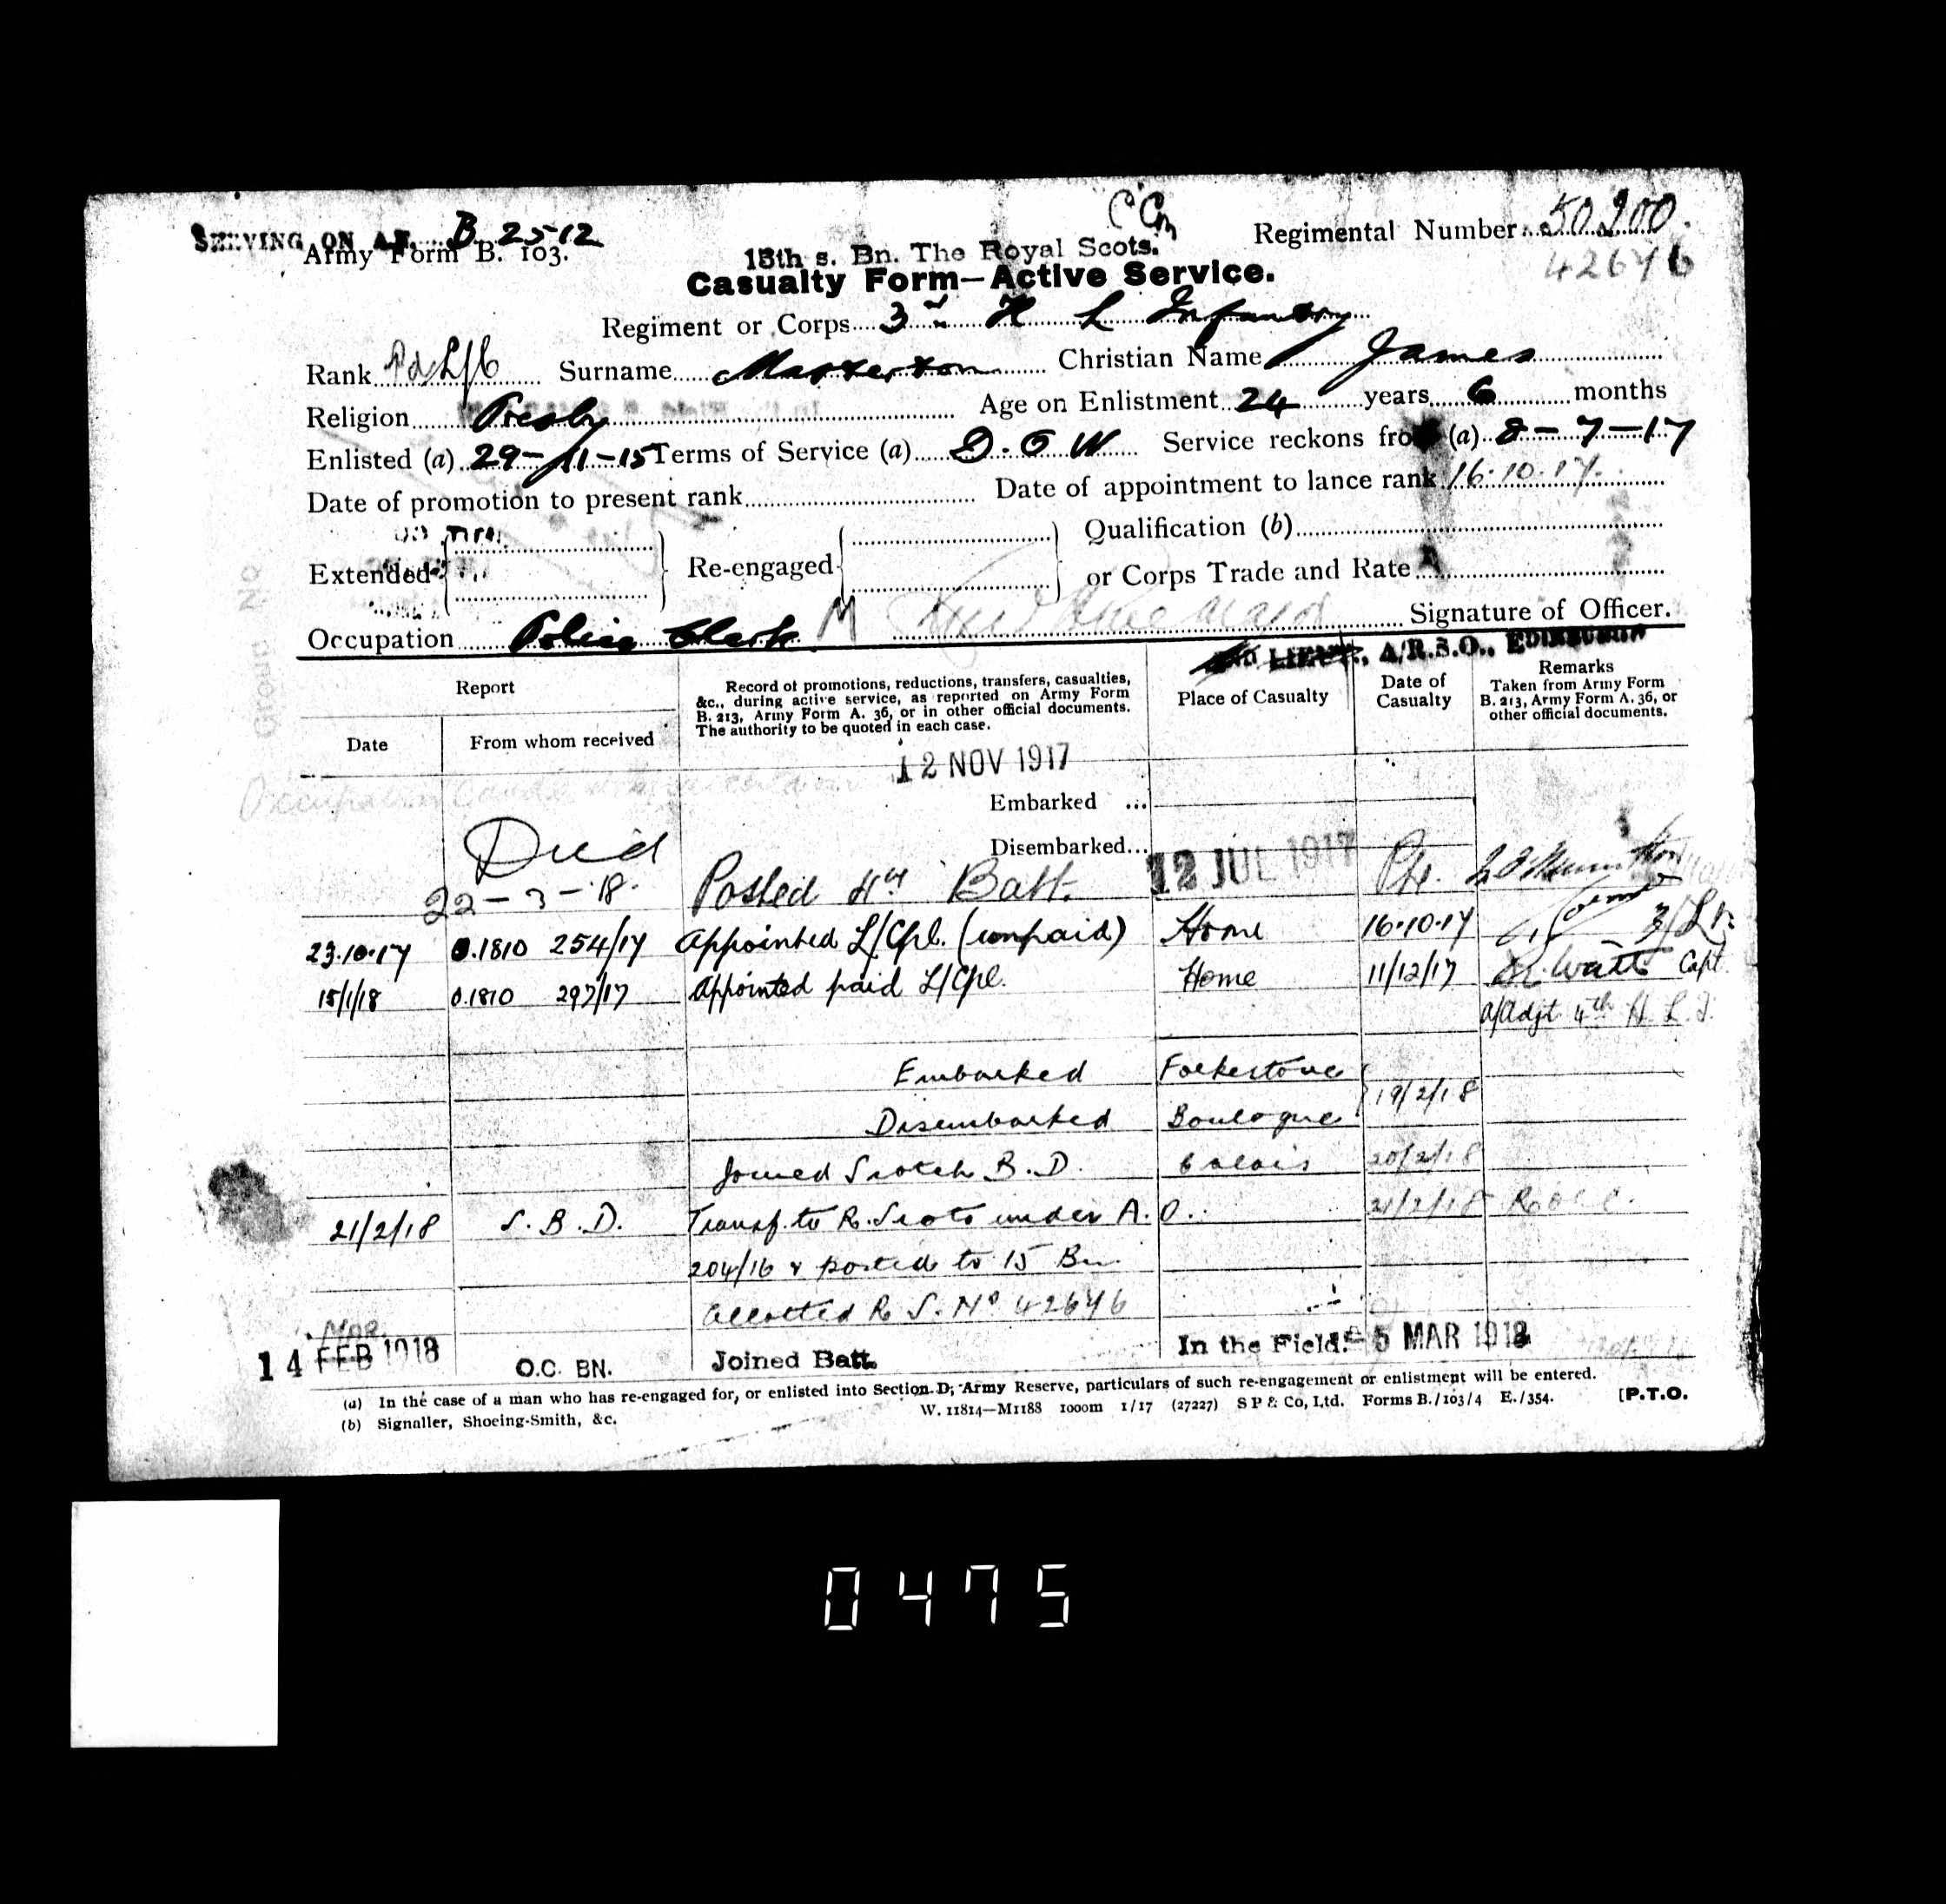 SERVING ON A.F. B. 2512
Army Form B. 103.
Regimental Number 50200.
42646
15th s. Bn. The Royal Scots.
Casualty Form—Active Service.
Regiment or Corps 3rd H L Infantry
Rank Pd L/C Surname Masterton Christian Name James
Religion Presby Age on Enlistment 24 years 6 months
Enlisted (a) 29-11-15 Terms of Service (a) D.O.W Service reckons from (a) 8-7-17
Date of promotion to present rank Date of appointment to lance rank 16.10.17.
Extended Re-engaged Qualification (b)
or Corps Trade and Rate
Occupation Police Clerk M Signature of Officer.
LIEUT., A/R.S.O., EDINBURGH
Report
Date
From whom received
Record of promotions, reductions, transfers, casualties,
&c., during active service, as reported on Army Form
B. 213, Army Form A. 36, or in other official documents.
The authority to be quoted in each case.
Place of Casualty
Date of
Casualty
Remarks
Taken from Army Form
B. 213, Army Form A. 36, or
other official documents.
12 NOV 1917
Embarked ...
Disembarked...
Died
22-3-18.
Posted 4th Batt. 12 JUL 1917
23.10.17 O.1810 254/17 Appointed L/Cpl. (unpaid) Home 16.10.17 2/Lt
15/1/18 O.1810 297/17 Appointed paid L/Cpl. Home 11/12/17 Watts Capt.
A/Adjt 4th H. L. I.
Embarked Folkestone
19/2/18
Disembarked Boulogne
Joined Scotch B.D. Calais 20/2/18
21/2/18 S.B.D. Transf. to R. Scots under A.O. 21/2/18
204/16 & posted to 15 Bn.
Allotted R.S. No 42646
14 MAR FEB 1918 O.C. BN. Joined Batt. In the Field. 5 MAR 1918
(a) In the case of a man who has re-engaged for, or enlisted into Section D, Army Reserve, particulars of such re-engagement or enlistment will be entered.
(b) Signaller, Shoeing-Smith, &c.
W. 11814—M1188 1000m 1/17 (27227) S P & Co, Ltd. Forms B./103/4 E./354.
[P.T.O.
0475